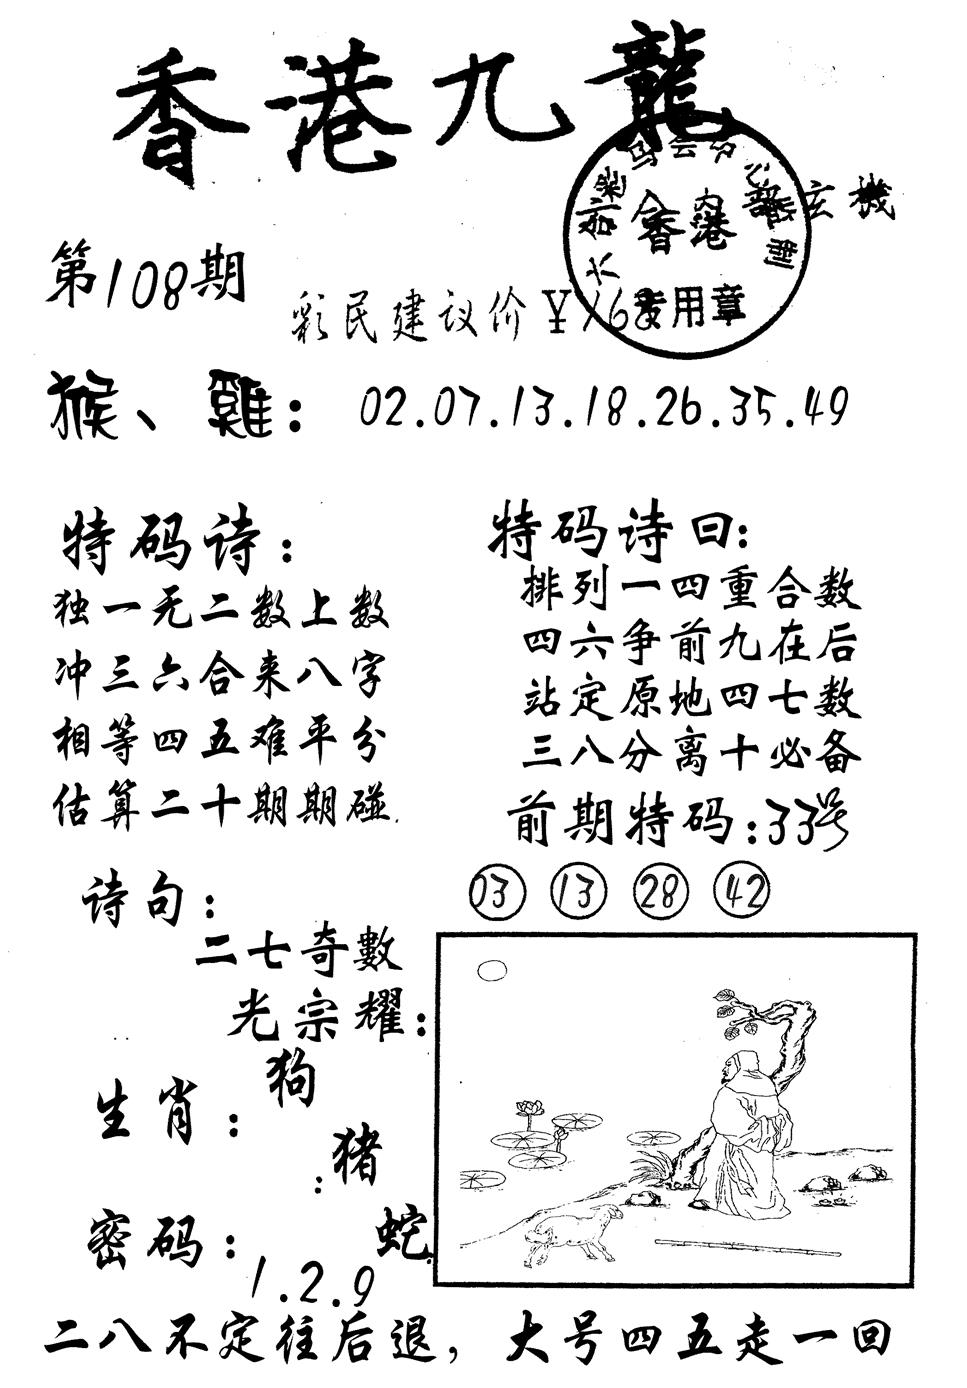 香港九龍
玄機
香港
专用章
第108期
彩民建议价¥168
猴、雞：02.07.13.18.26.35.49
特码诗：
独一无二数上数
冲三六合来八字
相等四五难平分
估算二十期期碰.
特码诗曰：
排列一四重合数
四六争前九在后
站定原地四七数
三八分离十必备
前期特码：33号
03 13 28 42
诗句：
二七奇數
光宗耀：
生肖：
狗
：猪
蛇
密码：
1.2.9
二八不定往后退，大号四五走一回